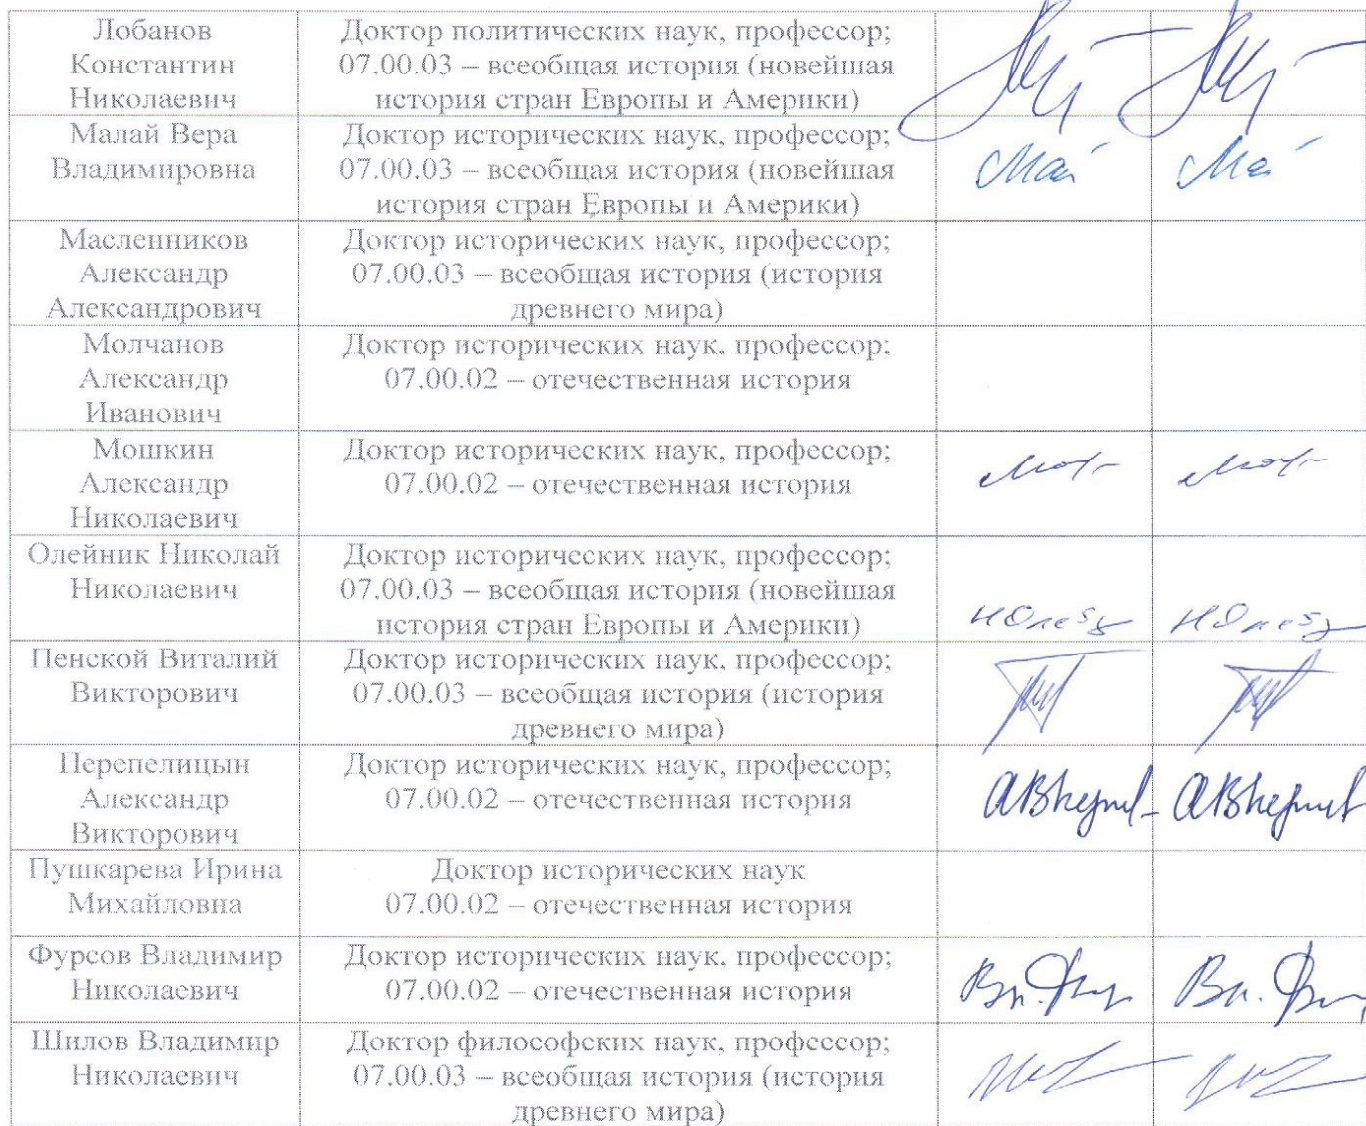 Лобанов
Константин
Николаевич
Доктор политических наук, профессор;
07.00.03 – всеобщая история (новейшая
история стран Европы и Америки)
Малай Вера
Владимировна
Доктор исторических наук, профессор;
07.00.03 – всеобщая история (новейшая
история стран Европы и Америки)
Масленников
Александр
Александрович
Доктор исторических наук, профессор;
07.00.03 – всеобщая история (история
древнего мира)
Молчанов
Александр
Иванович
Доктор исторических наук, профессор;
07.00.02 – отечественная история
Мошкин
Александр
Николаевич
Доктор исторических наук, профессор;
07.00.02 – отечественная история
Олейник Николай
Николаевич
Доктор исторических наук, профессор;
07.00.03 – всеобщая история (новейшая
история стран Европы и Америки)
Пенской Виталий
Викторович
Доктор исторических наук, профессор;
07.00.03 – всеобщая история (история
древнего мира)
Перепелицын
Александр
Викторович
Доктор исторических наук, профессор;
07.00.02 – отечественная история
Пушкарева Ирина
Михайловна
Доктор исторических наук
07.00.02 – отечественная история
Фурсов Владимир
Николаевич
Доктор исторических наук, профессор;
07.00.02 – отечественная история
Шилов Владимир
Николаевич
Доктор философских наук, профессор;
07.00.03 – всеобщая история (история
древнего мира)